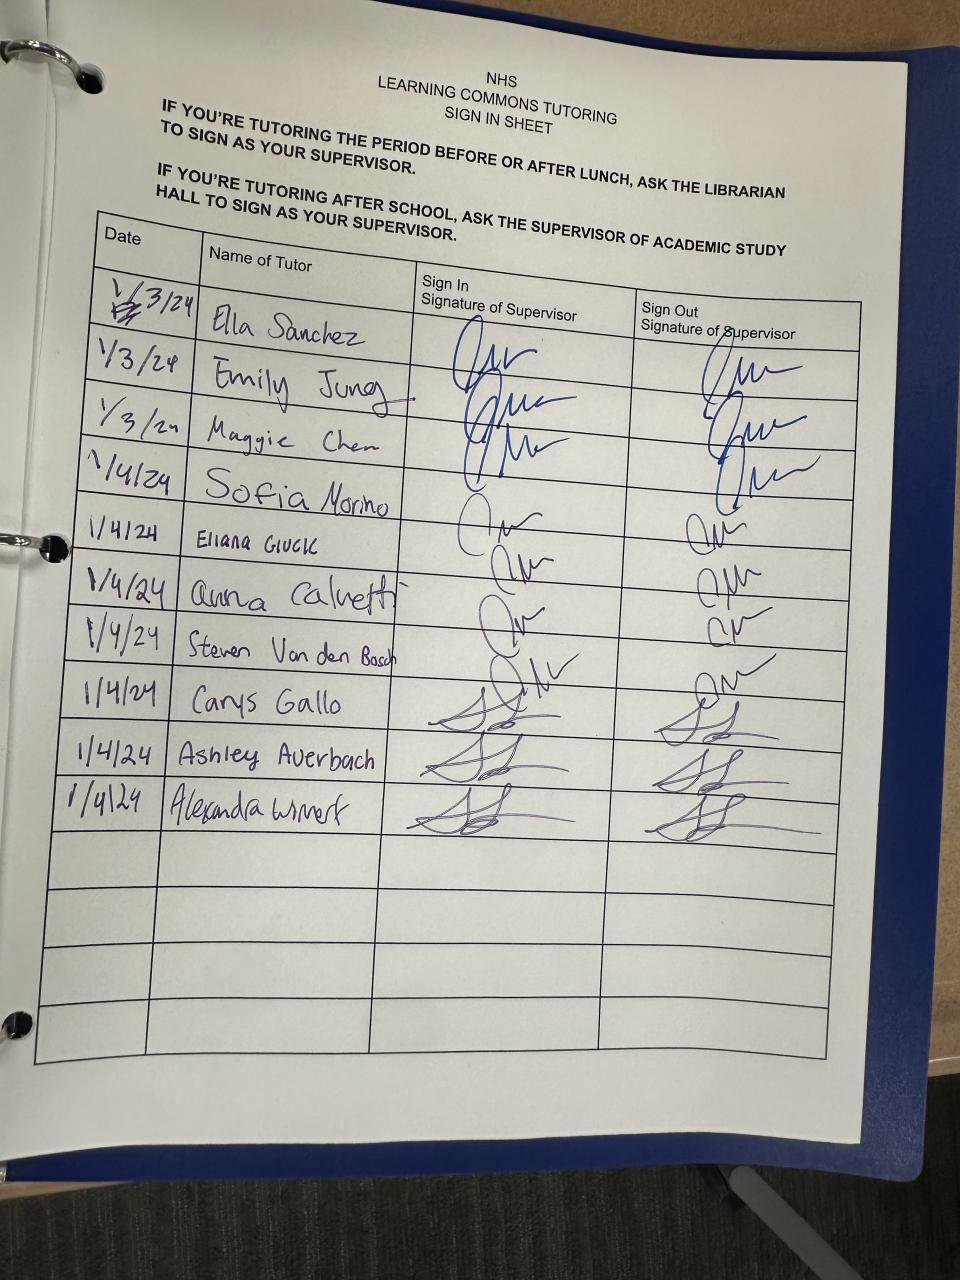 NHS
LEARNING COMMONS TUTORING
SIGN IN SHEET
IF YOU'RE TUTORING THE PERIOD BEFORE OR AFTER LUNCH, ASK THE LIBRARIAN
TO SIGN AS YOUR SUPERVISOR.
IF YOU'RE TUTORING AFTER SCHOOL, ASK THE SUPERVISOR OF ACADEMIC STUDY
HALL TO SIGN AS YOUR SUPERVISOR.
Date Name of Tutor Sign In Signature of Supervisor Sign Out Signature of Supervisor
1/3/24 Ella Sanchez
1/3/24 Emily Jung
1/3/24 Maggie Chen
1/4/24 Sofia Morino
1/4/24 Eliana Gluck
1/4/24 Anna Calvetti
1/4/24 Steven Van den Bosch
1/4/24 Carys Gallo
1/4/24 Ashley Auerbach
1/4/24 Alexandra